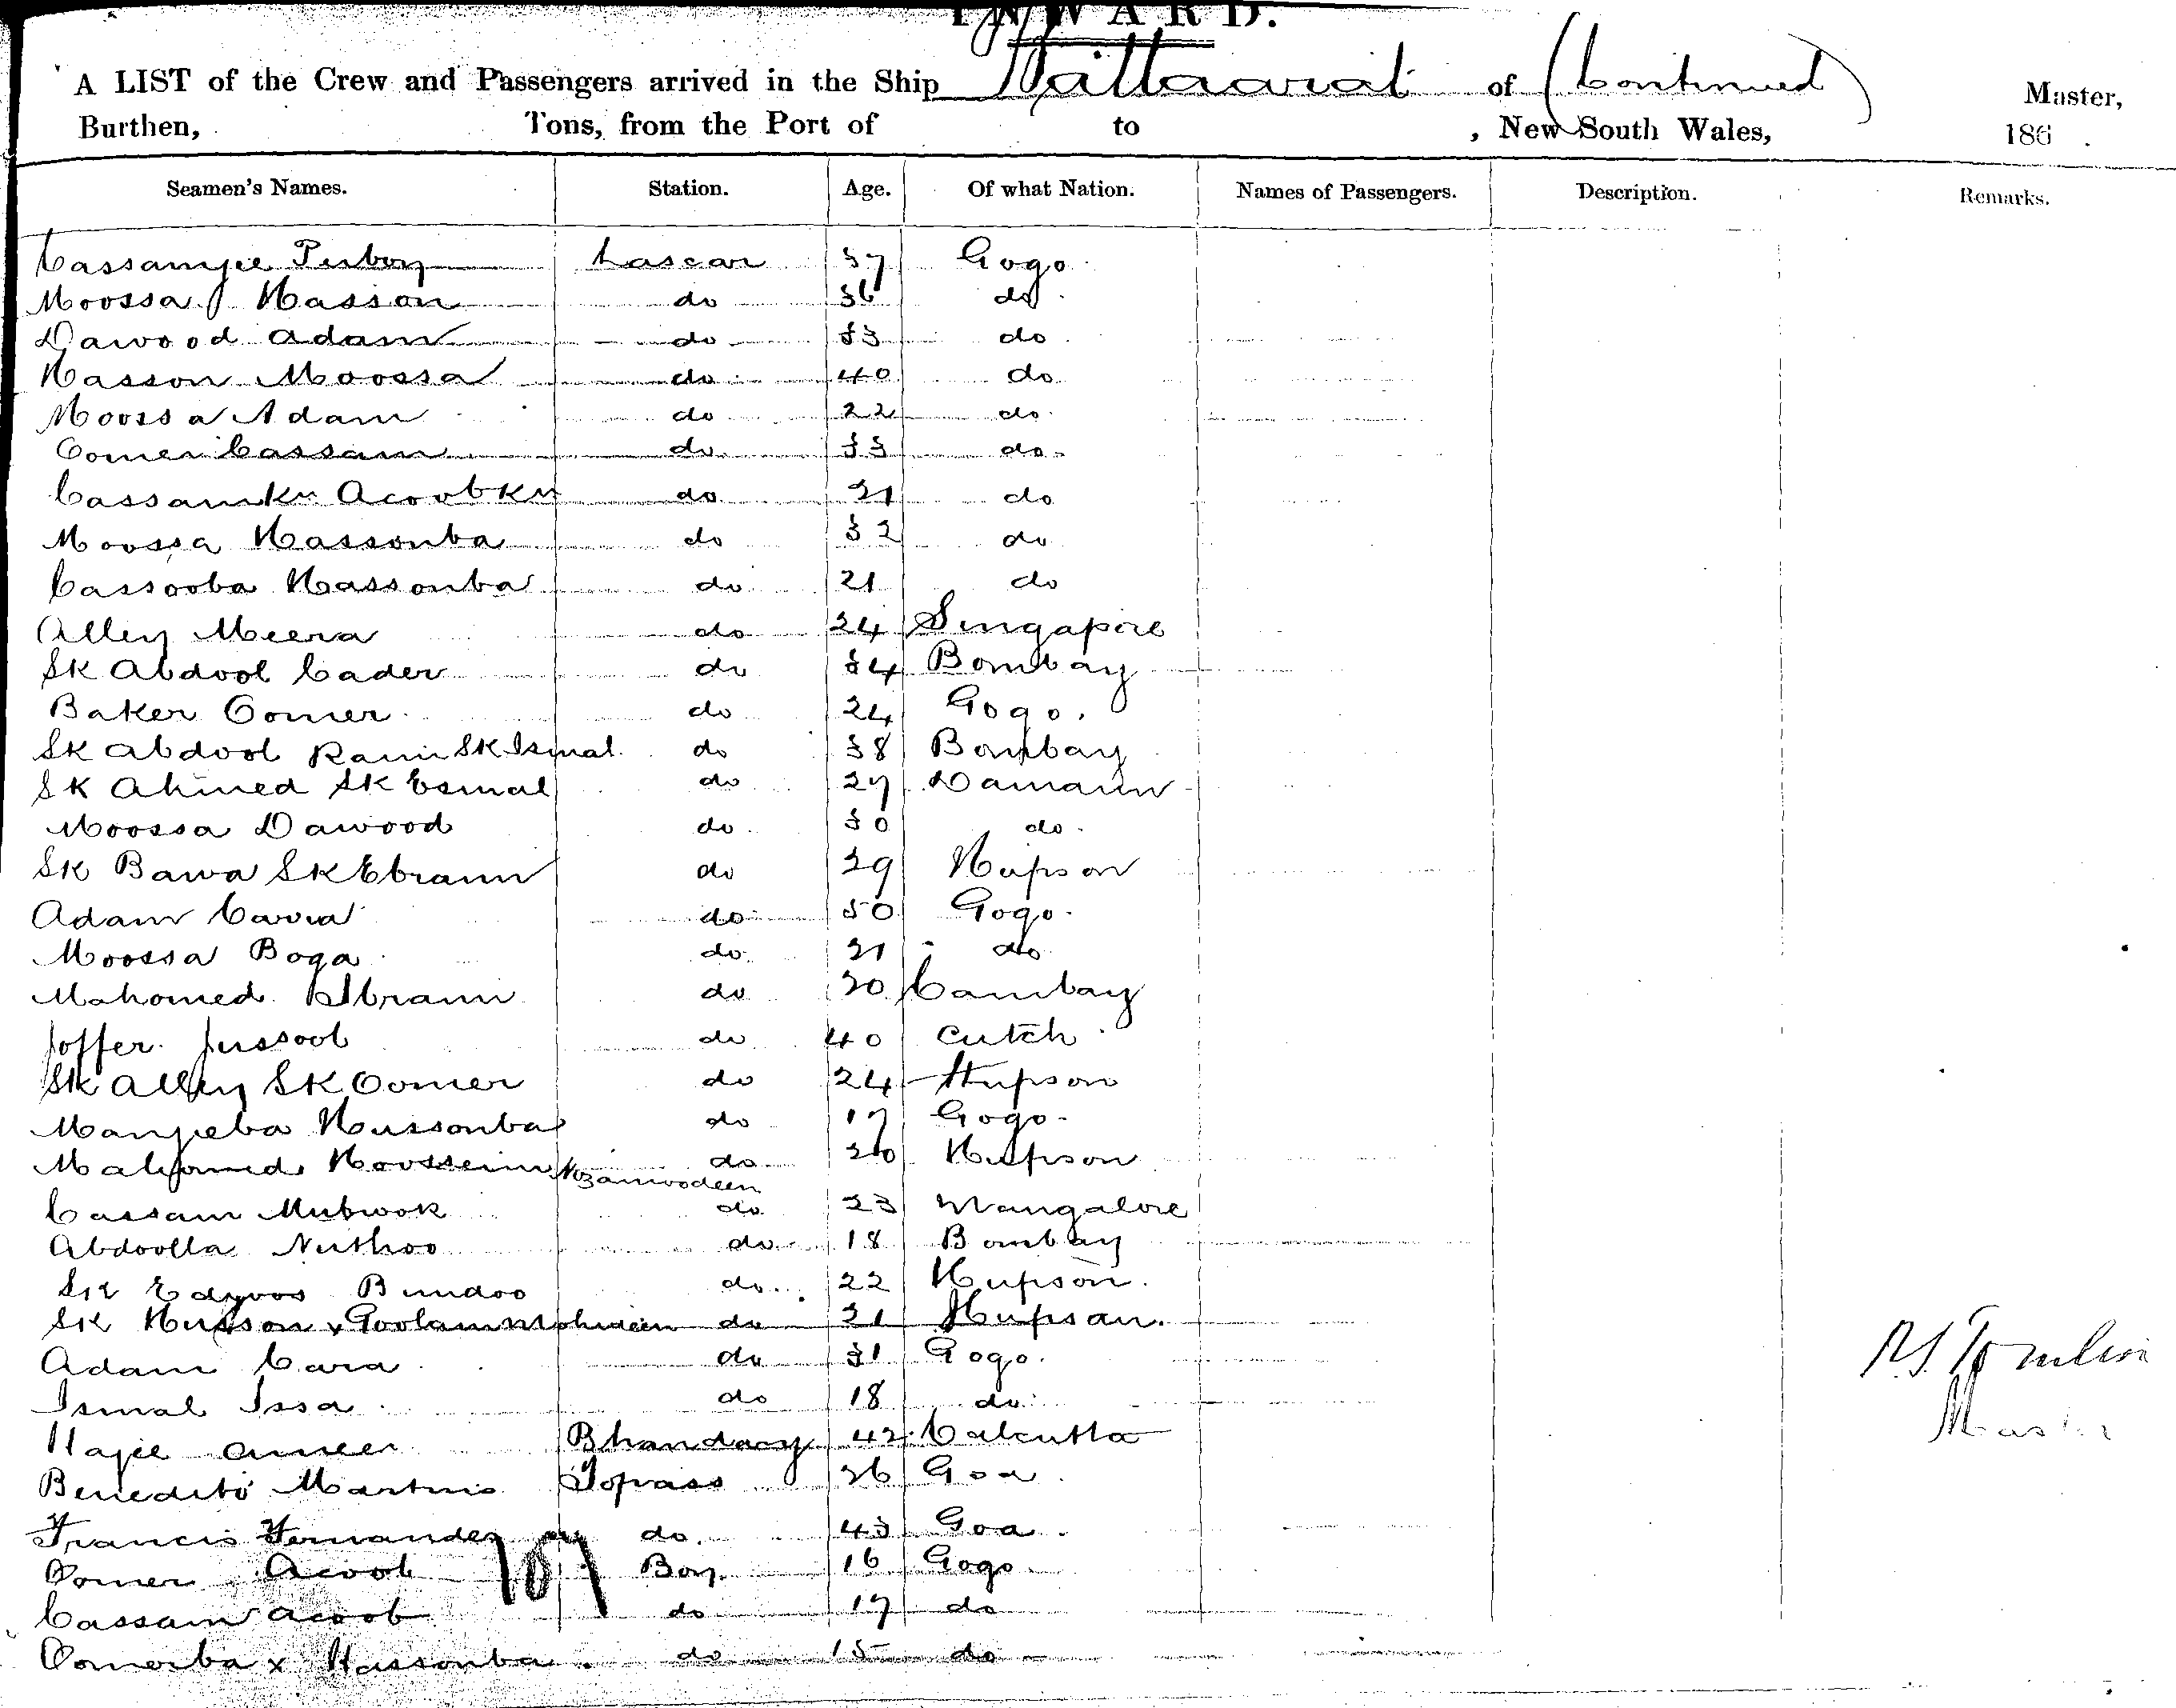 INWARD.
A LIST of the Crew and Passengers arrived in the Ship Ballaarat of (Continued) Master,
Burthen, Tons, from the Port of to , New South Wales, 186 .
Seamen's Names. Station. Age. Of what Nation. Names of Passengers. Description. Remarks.
Cassamjee Lascar 37 Gogo
Moossa Hasson do 36 do
Dawood Adam do 33 do
Hasson Moossa do 40 do
Moossa Adam do 22 do
Oomer Cassam do 33 do
Cassamku Acoobku do 21 do
Moossa Hassonba do 32 do
Cassooba Hassonba do 21 do
Alley Meera do 24 Singapore
Sk Abdool Cader do 34 Bombay
Baker Oomer do 24 Gogo.
Sk Abdool Ram Sk Ismal do 38 Bombay
Sk Ahmed Sk Esmal do 27 Damaun
Moossa Dawood do 30 do
Sk Bawa Sk Ebraim do 29 Hupson
Adam do 50 Gogo.
Moossa Boga do 21 do
Mahomed Ibraim do 20 Cambay
Joffer Jussoob do 40 Cutch
Sk Alley Sk Oomer do 24 Hupson
Manjeba Hussonba do 17 Gogo
Mahomed Hoossein Nozamoodeen do Hupson
Cassam Mubwok do 23 Mangalore
Abdoolla Nuthoo do 18 Bombay
Sk Edroos Bundoo do 22 Hupson.
Sk Husson x Goolam Mohideen do 21 Hupsan.
Adam Cara do 31 Gogo.
Ismal Issa do 18 do
Hajee Ameer Bhandary 42 Calcutta
Benedito Martins Topass 26 Goa
Francis Fernandez do 43 Goa
Oomer Acoob Boy 16 Gogo
107
Cassam Acoob do 17 do
Oomerba x Hassonba do 15 do
Master